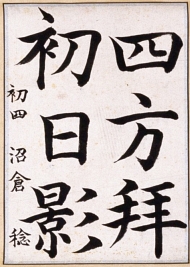 四方拜
初日影
初四 沼倉 稔